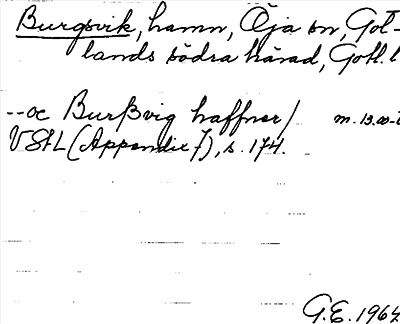 Burgsvik, hamn, Öja sn, Got-
lands södra härad, Gotl. l
--oc Burßvig haffner/ m. 13.00-t
VStL (Appendix 7), s. 174.
G.E. 1964